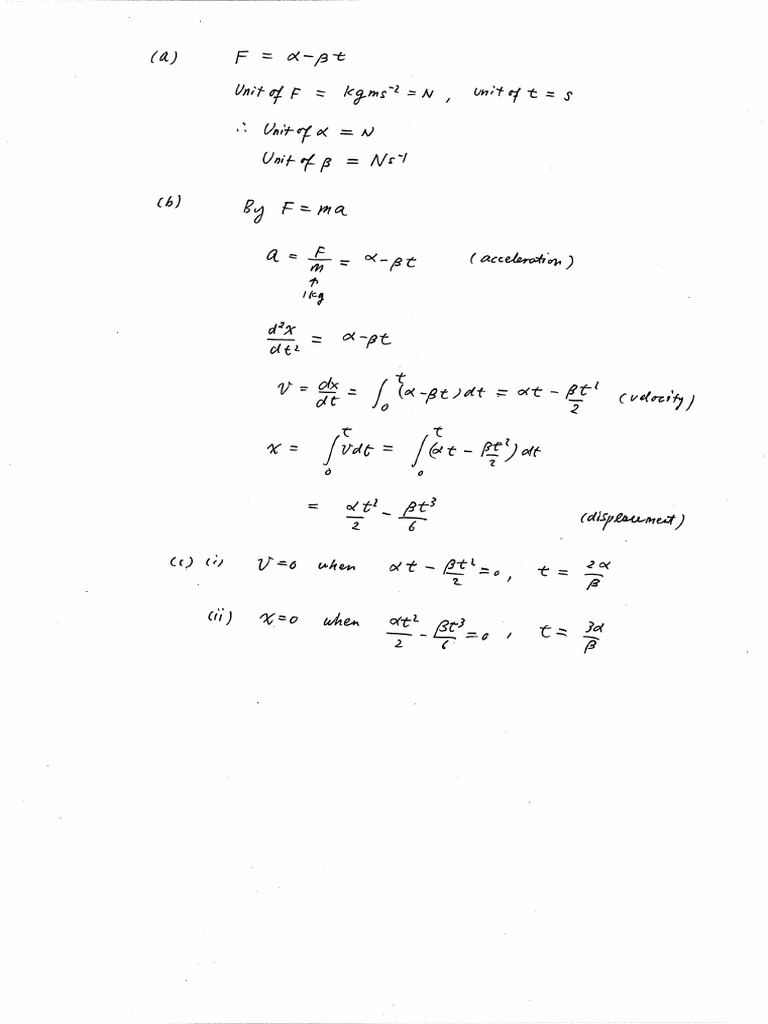 (a) F = α-βt
Unit of F = kgms⁻² = N , unit of t = s
∴ Unit of α = N
Unit of β = Ns⁻¹
(b) By F = ma
a = F/m = α-βt (acceleration)
↑
1kg
d²x/dt² = α-βt
v = dx/dt = ∫₀ᵗ (α-βt)dt = αt - βt²/2 (velocity)
x = ∫₀ᵗ vdt = ∫₀ᵗ (αt - βt²/2) dt
= αt²/2 - βt³/6 (displacement)
(c) (i) v=0 when αt - βt²/2 = 0, t = 2α/β
(ii) x=0 when αt²/2 - βt³/6 = 0 , t = 3α/β